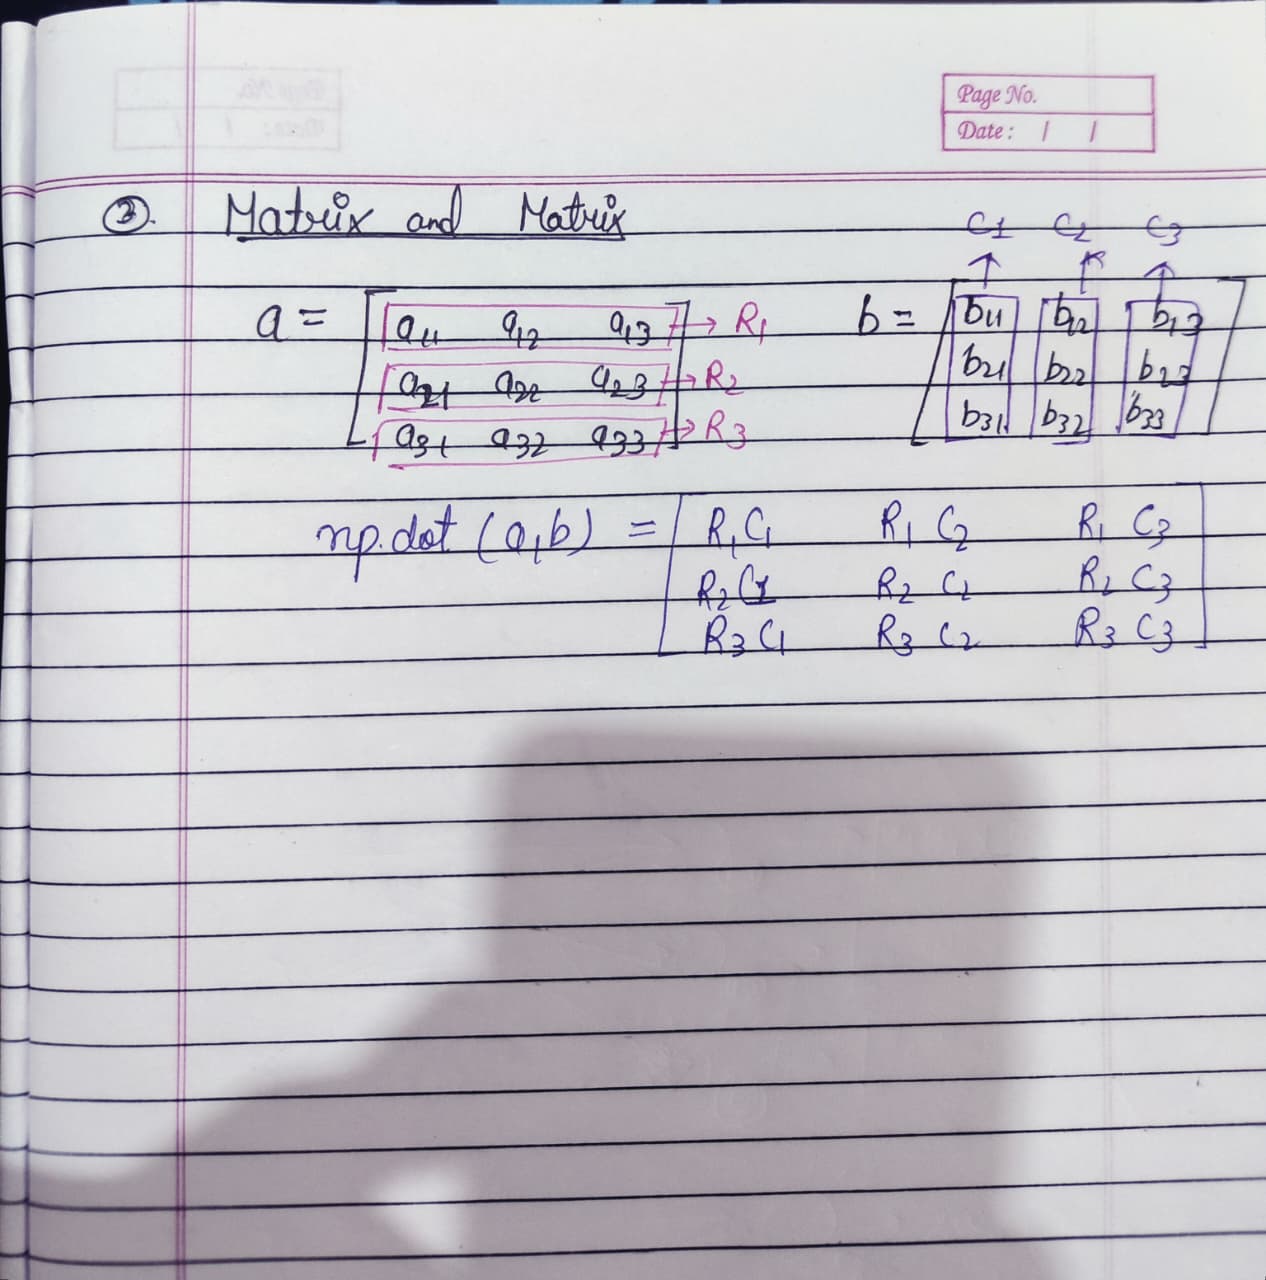 Page No.
Date: / /
3. Matrix and Matrix
C1 C2 C3
a = [ a11 a12 a13 ] → R1
a21 a22 a23 → R2
a31 a32 a33 → R3
b = [ b11 b12 b13 ]
b21 b22 b23
b31 b32 b33
np.dot (a,b) = [ R1C1 R1 C2 R1 C3 ]
R2C1 R2 C2 R2 C3
R3 C1 R3 C2 R3 C3